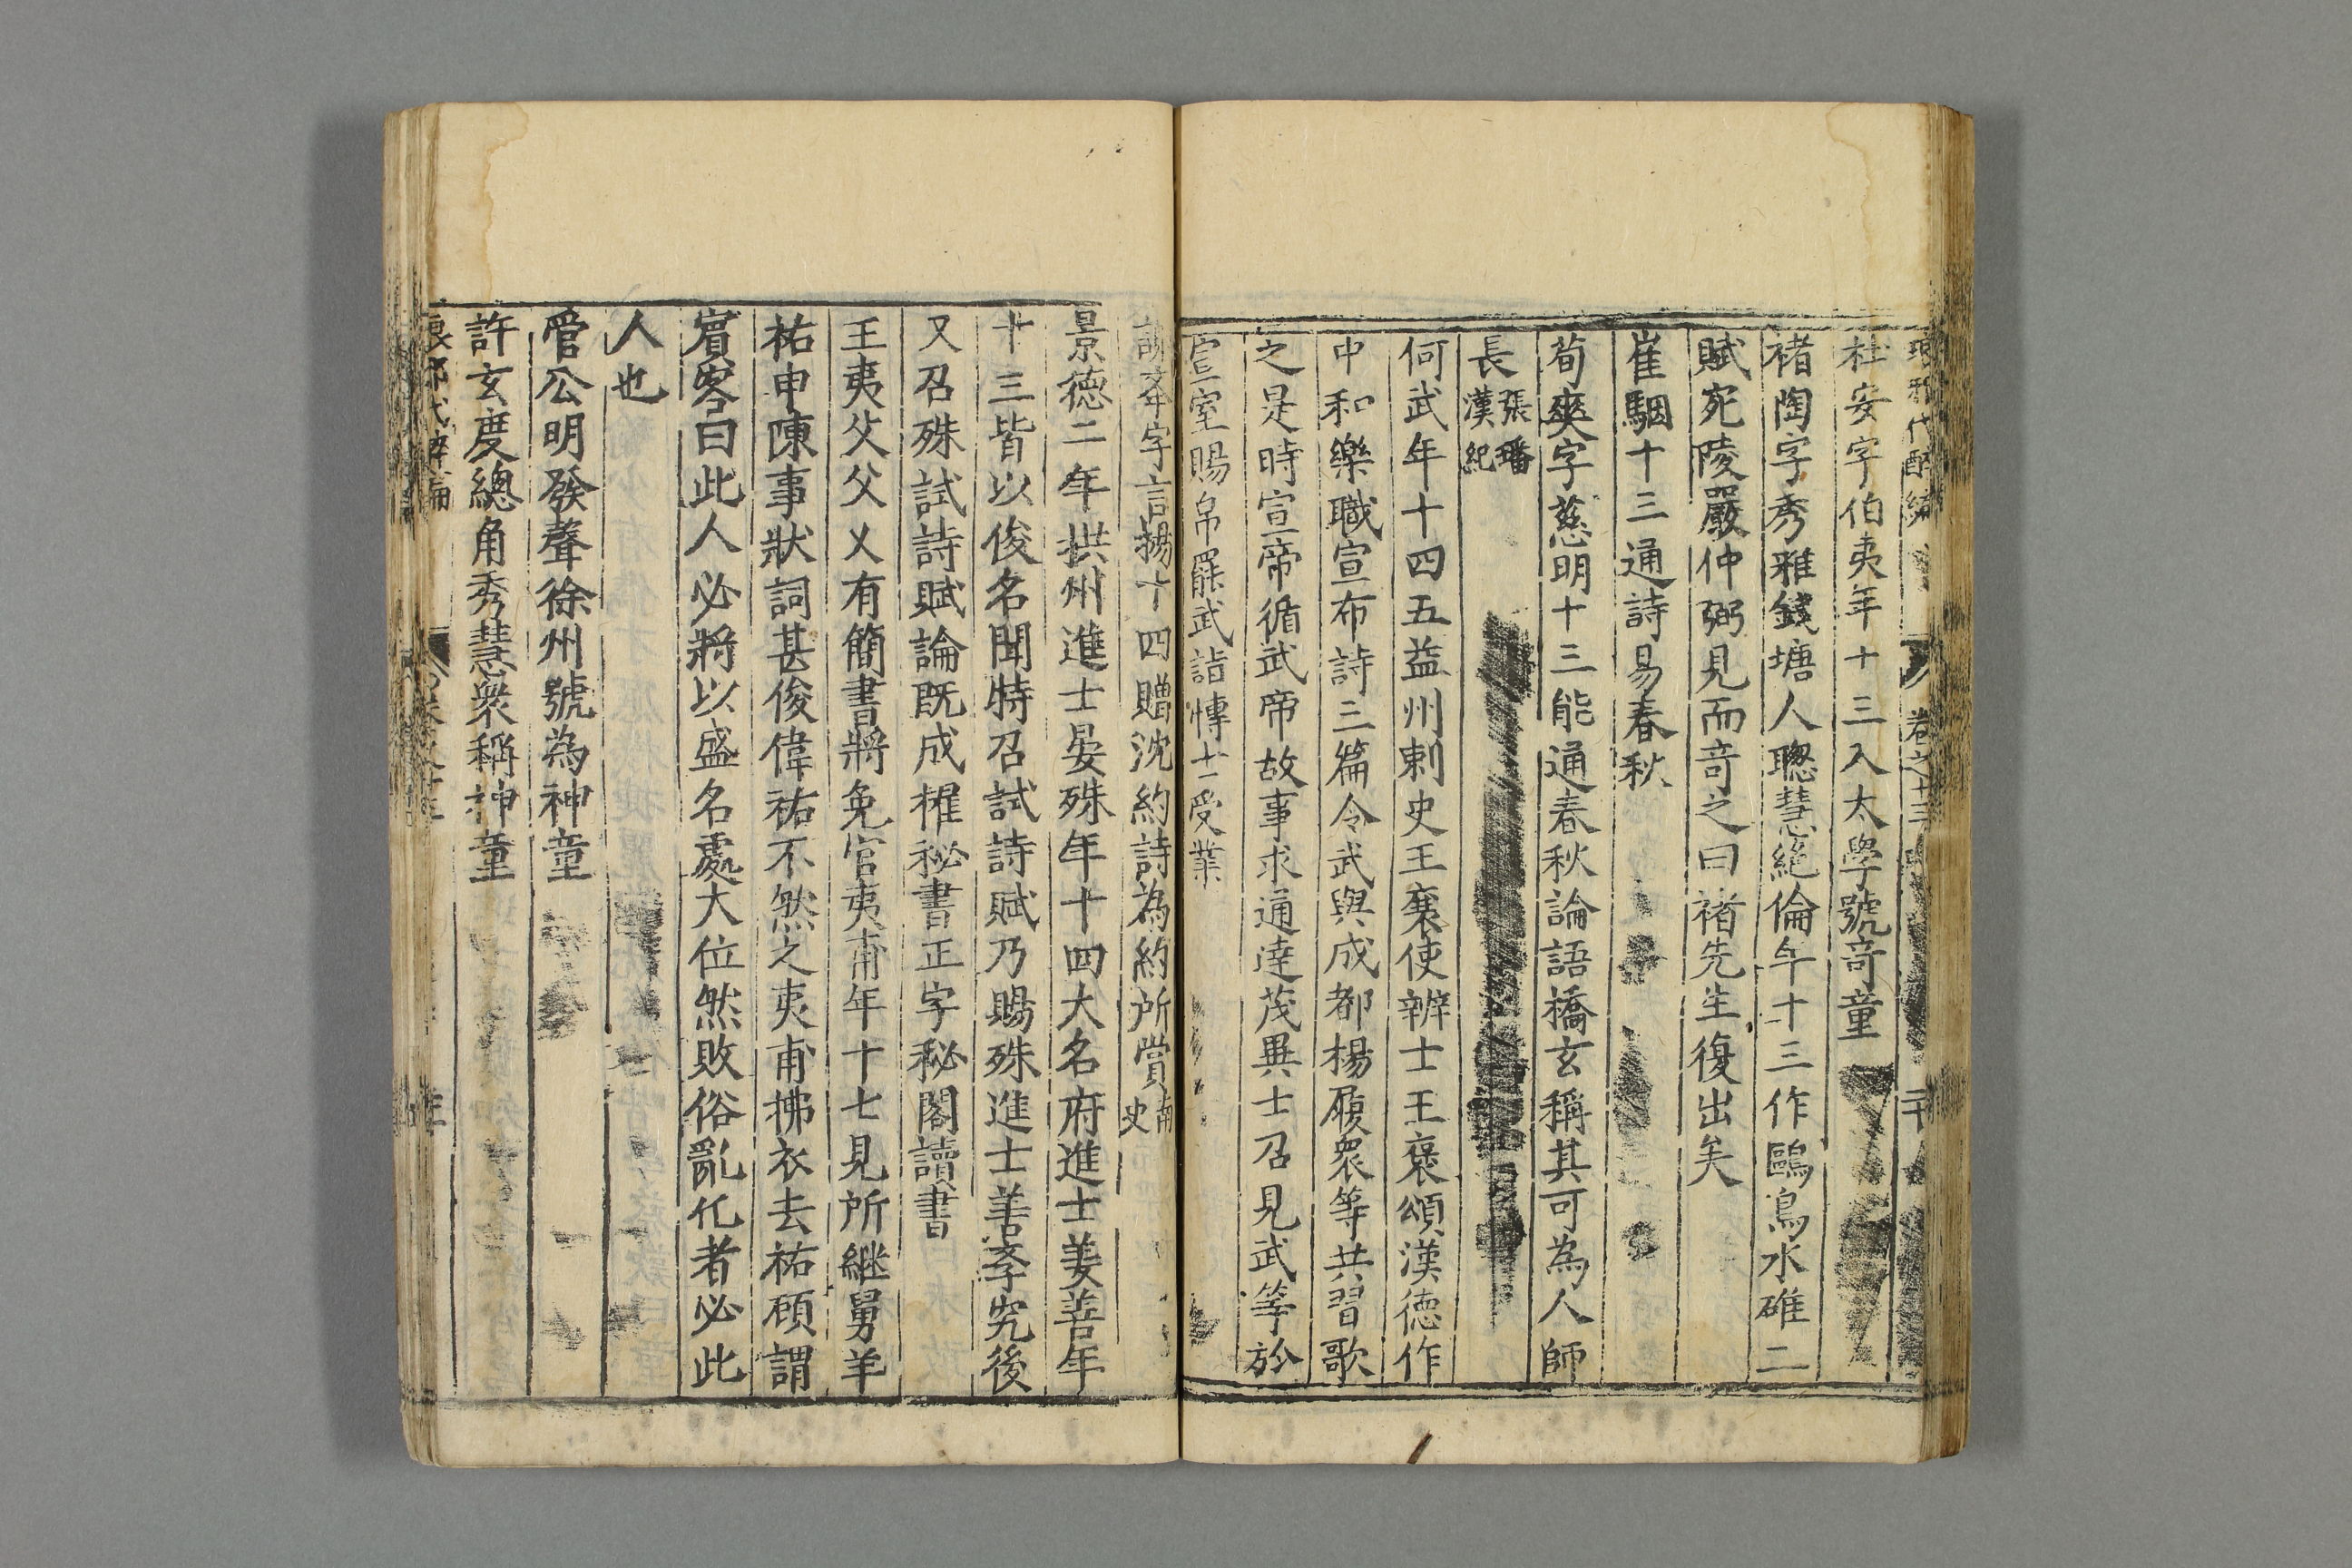 琅邪代醉編 卷之十三 二十
杜安字伯夷年十三入太學號竒童
禇陶字秀雅錢塘人聦慧絕倫年十三作鷗鳥水碓二
賦宛陵嚴仲弼見而竒之曰禇先生復出矣
崔駰十三通詩易春秋
荀爽字慈明十三能通春秋論語橋玄稱其可為人師
長張璠漢紀
何武年十四五益州刺史王襄使辨士王褒頌漢徳作
中和樂職宣布詩三篇令武與成都楊履衆等共習歌
之是時宣帝循武帝故事求通達茂異士召見武等於
宣室賜帛罷武詣愽士受業
謝字言揚十四贈沈約詩為約所賞南史
景徳二年拱州進士晏殊年十四大名府進士姜善年
十三皆以俊名聞特召試詩賦乃賜殊進士善孝究後
又召殊試詩賦論既成櫂秘書正字秘閣讀書
王夷父父乂有簡書將免官夷甫年十七見所継舅羊
祐申陳事狀詞甚俊偉祐不然之夷甫拂衣去祐顧謂
賔客曰此人必將以盛名處大位然敗俗亂化者必此
人也
管公明發聲徐州號為神童
許玄度總角秀慧衆稱神童